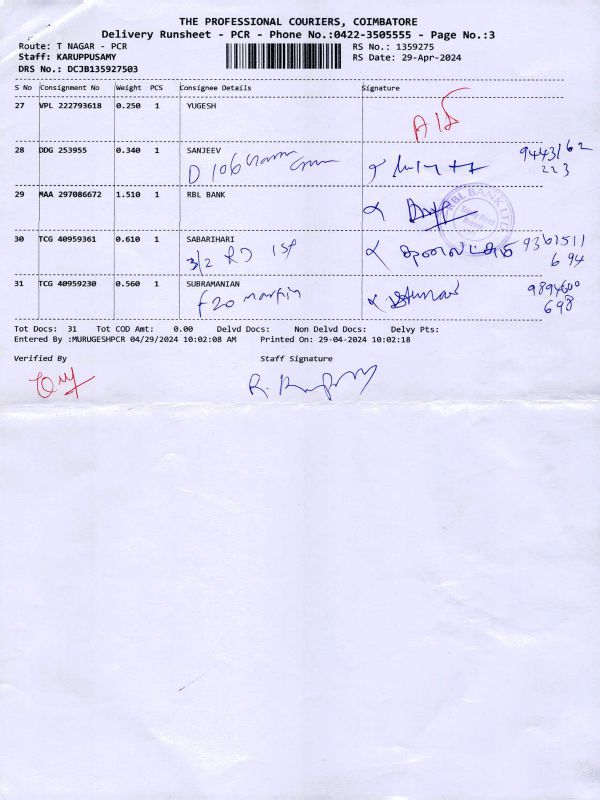 THE PROFESSIONAL COURIERS, COIMBATORE
Delivery Runsheet - PCR - Phone No.:0422-3505555 - Page No.:3
Route: T NAGAR - PCR RS No.: 1359275
Staff: KARUPPUSAMY RS Date: 29-Apr-2024
DRS No.: DCJB135927503
S No Consignment No Weight PCS Consignee Details Signature
27 VPL 222793618 0.250 1 YUGESH
28 DDG 253955 0.340 1 SANJEEV
D 106
9443162
223
29 MAA 297086672 1.510 1 RBL BANK
RBL BANK LTD
30 TCG 40959361 0.610 1 SABARIHARI
3/2 RD 1st
9361511
694
31 TCG 40959230 0.560 1 SUBRAMANIAN
F20 martin
9894600
698
Tot Docs: 31 Tot COD Amt: 0.00 Delvd Docs: Non Delvd Docs: Delvy Pts:
Entered By :MURUGESHPCR 04/29/2024 10:02:08 AM Printed On: 29-04-2024 10:02:18
Verified By Staff Signature